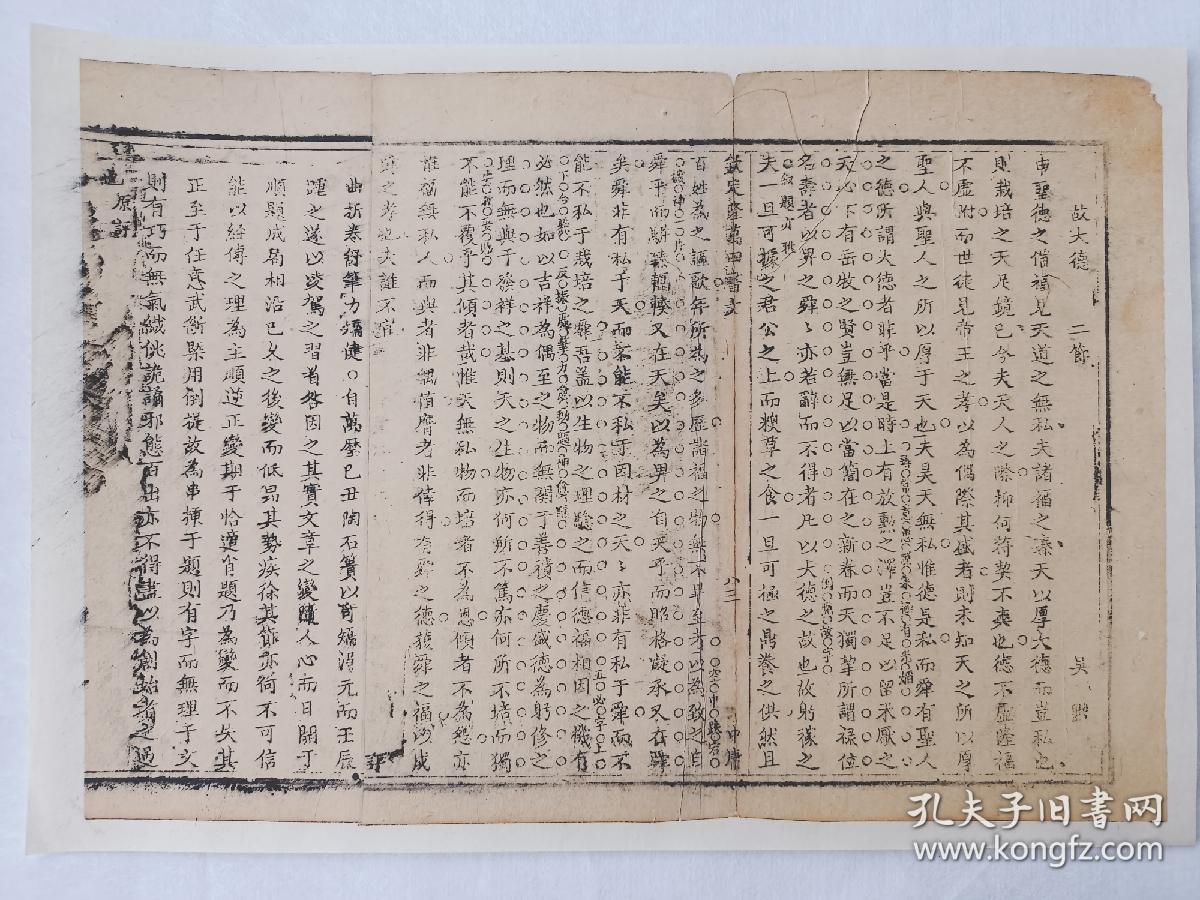 故大德 二節 吳 默
由聖德之備福見天道之無私夫諸福之臻天以厚大德而豈私也
則栽培之天足鏡已今夫天人之際抑何符契不爽也德不虛隆福
不虛附而世徒見帝王之孝以為偶際其盛者則未知天之所以厚
聖人與聖人之所以厚于天也夫昊天無私惟德是私而舜有聖人
之德所謂大德者非乎當是時上有放勳之澤豈不足以留未厭之
天心下有岳牧之賢豈無足以當簡在之新眷而天獨挚所謂祿位
名壽者以畀之舜舜亦若辭而不得者凡以大德之故也故躬祿之
夫一旦可據之君公之上而糗草之食一旦可極之鼎養之供然且
叙題亦
欽定啓禎四書文
八三
中庸
百姓為之謳歌年所為之多歷諸福之物無不畢至者以為致之自
舜乎而駢臻輻輳又在天矣以為畀之自天乎而昭格凝承又在舜
矣舜非有私于天而不能不私于因材之天天亦非有私于舜而不
能不私于栽培之舜吾蓋以生物之理驗之而信德福相因之機有
必然也如以吉祥為偶至之物而無關于善積之慶盛德為躬修之
理而無與于發祥之基則天之生物亦何所不篤亦何所不培而獨
不能不覆予其傾者哉惟天無私物而培者不為恩傾者不為怨亦
惟福無私人而與者非偶值膺者非倖得有舜之德獲舜之福以成
舜之孝也夫誰不宜
曲折卷舒筆力矯健○自萬曆己丑陶石簣以奇矯得元而壬辰
踵之遂以凌駕之習者咎因之其實文章之變隨人心而日開于
順題成局相沿已久之後變而低昂其勢疾徐其節亦何不可信
能以經傳之理為主順逆正變期于恰適肖題乃為變而不失其
正至于任意武衡顛用倒提故為串插于題則有字而無理于文
則有巧而無氣纖佻詭譎邪態百出亦不得盡以為創始者之過
也原評
孔夫子旧书网
www.kongfz.com